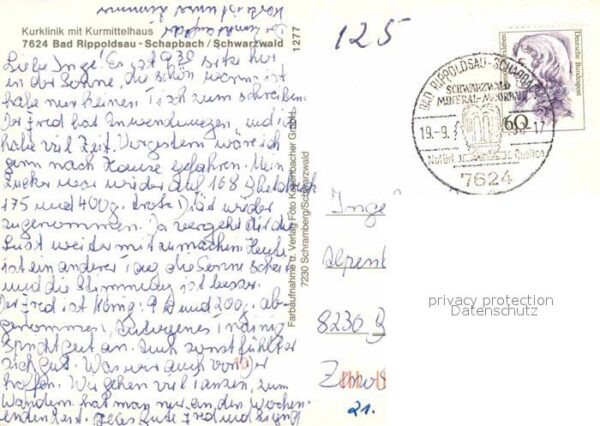 Kurklinik mit Kurmittelhaus
7624 Bad Rippoldsau - Schapbach / Schwarzwald
1277
125
Liebe Inge! Es ist 9 30 sitze hier
in der Sonne, die schön warm ist
habe nur keinen Tisch zum schreiben.
Der Fred hat Anwendungen, und ich
habe viel Zeit. Vorgestern wäre ich
gern nach Hause gefahren. Mein
Zucker war wieder auf 168
175 und 400g. trotz Diät wieder
zugenommen. Da vergeht dir die
Lust weiter mitzumachen. Heute
ist ein anderer Tag die Sonne scheint
und die Stimmung ist besser.
Der Fred ist König: 9 und 200g. ab-
genommen, Autogenes Training
spricht gut an. Auch sonst fühlt er
sich gut. Was wir auch von Dir
hoffen. Wir gehen viel Tanzen, zum
Wandern hat man nur an den Wochen-
enden Zeit. Alles Gute Fred und
Farbaufnahme u. Verlag Foto Kaltenbacher GmbH
7230 Schramberg/Schwarzwald
Deutsche Bundespost
60
BAD RIPPOLDSAU-SCHAPBACH
SCHWARZWALD
MINERAL-MOORBAD
19.-9.
17
7624
Inge
Alpenst
8230 B
21.
privacy protection
Datenschutz